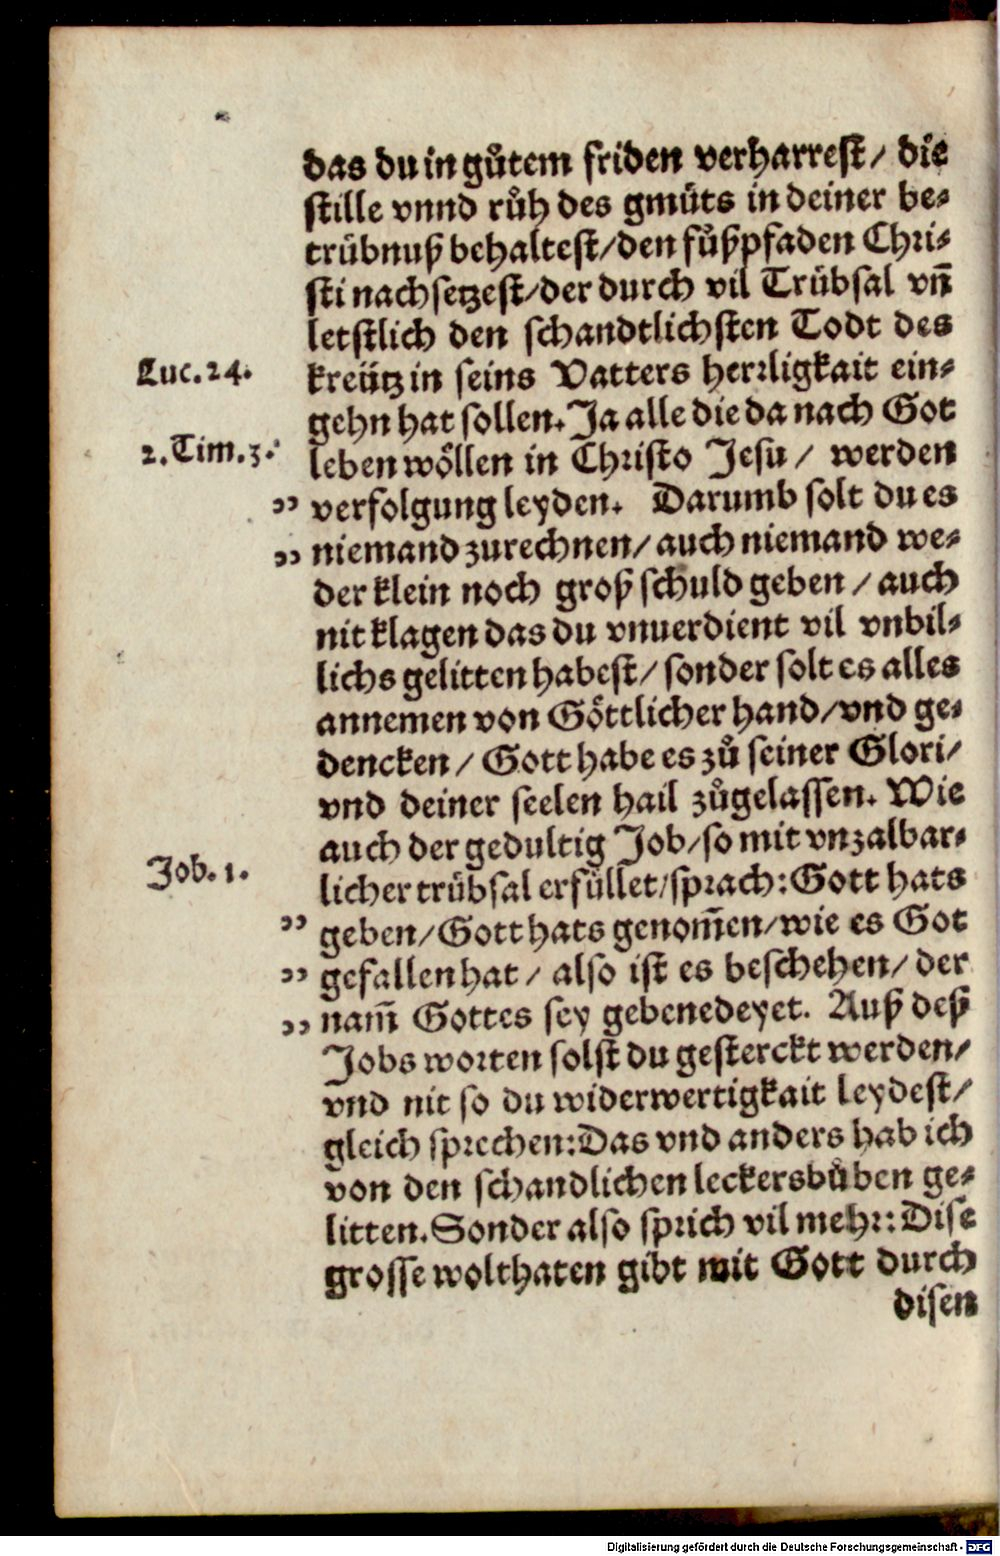 das du in gůtem friden verharrest/ die
stille vnnd růh des gmüts in deiner be-
trübnuß behaltest/den fůßpfaden Chri-
sti nachsetzest/der durch vil Trübsal vn̄
letstlich den schandtlichsten Todt des
Luc. 24. kreütz in seins Vatters herrligkait ein-
gehn hat sollen. Ja alle die da nach Got
2. Tim. 3. leben wöllen in Christo Jesu/ werden
„ verfolgung leyden. Darumb solt du es
„ niemand zurechnen/ auch niemand we-
der klein noch groß schuld geben/ auch
nit klagen das du vnuerdient vil vnbil-
lichs gelitten habest/ sonder solt es alles
annemen von Göttlicher hand/vnd ge-
dencken/ Gott habe es zů seiner Glori/
vnd deiner seelen hail zůgelassen. Wie
auch der gedultig Job/so mit vnzalbar-
Job. 1. licher trübsal erfüllet/sprach: Gott hats
„ geben/Gott hats genom̄en/wie es Got
„ gefallen hat/ also ist es beschehen/ der
„ nam̄ Gottes sey gebenedeyet. Auß deß
Jobs worten solst du gesterckt werden/
vnd nit so du widerwertigkait leydest/
gleich sprechen: Das vnd anders hab ich
von den schandlichen leckersbůben ge-
litten. Sonder also sprich vil mehr: Dise
grosse wolthaten gibt mit Gott durch
disen
Digitalisierung gefördert durch die Deutsche Forschungsgemeinschaft - DFG